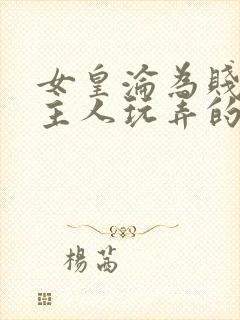 女皇淪為賤
主人玩弄的
楊茜